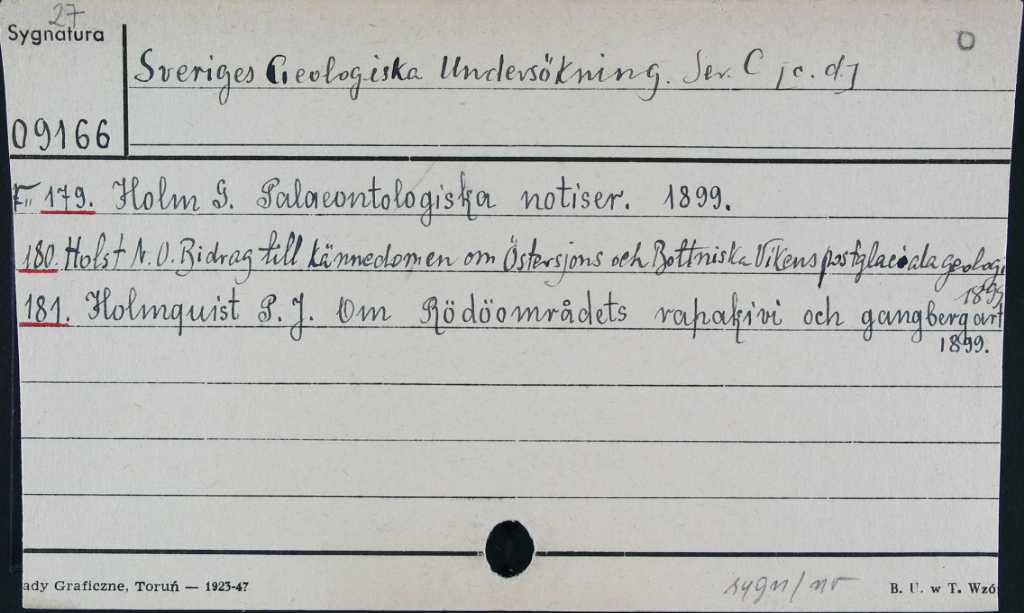 27
Sygnatura
O
Sveriges Geologiska Undersökning. Ser. C [c.d.]
09166
179. Holm G. Palaeontologiska notiser. 1899.
180. Holst N. O. Bidrag till kännedomen om Östersjons och Bottniska Vikens postglaciala geologi
1899.
181. Holmquist P. J. Om Rödöområdets rapakivi och gangbergart
1899.
ady Graficzne, Toruń — 1923-47
sygn/nr
B. U. w T. Wzó